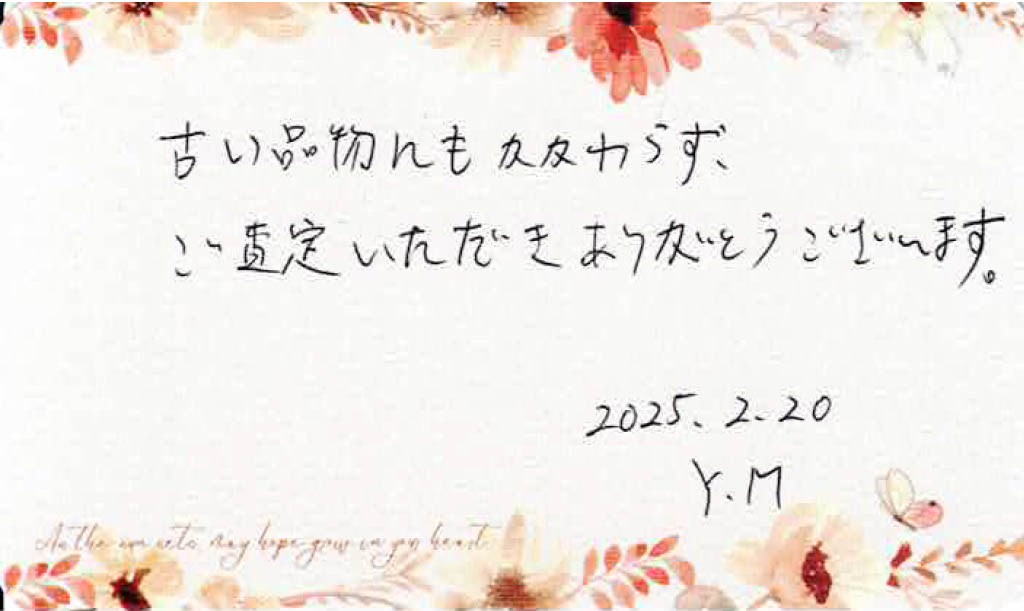 古い品物にもかかわらず、
ご査定いただきありがとうございます。
2025.2.20
Y.M
As the sun sets, may hope grow in your heart.